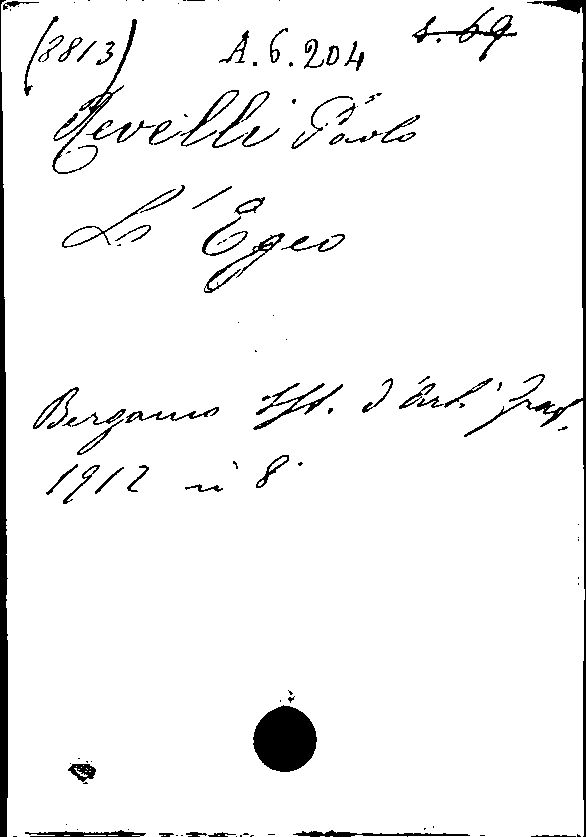 (8813) A.6.204 s. 69
Revelli Paolo
L'Egeo
Bergamo Ist. d'Arti Graf.
1912 in 8.